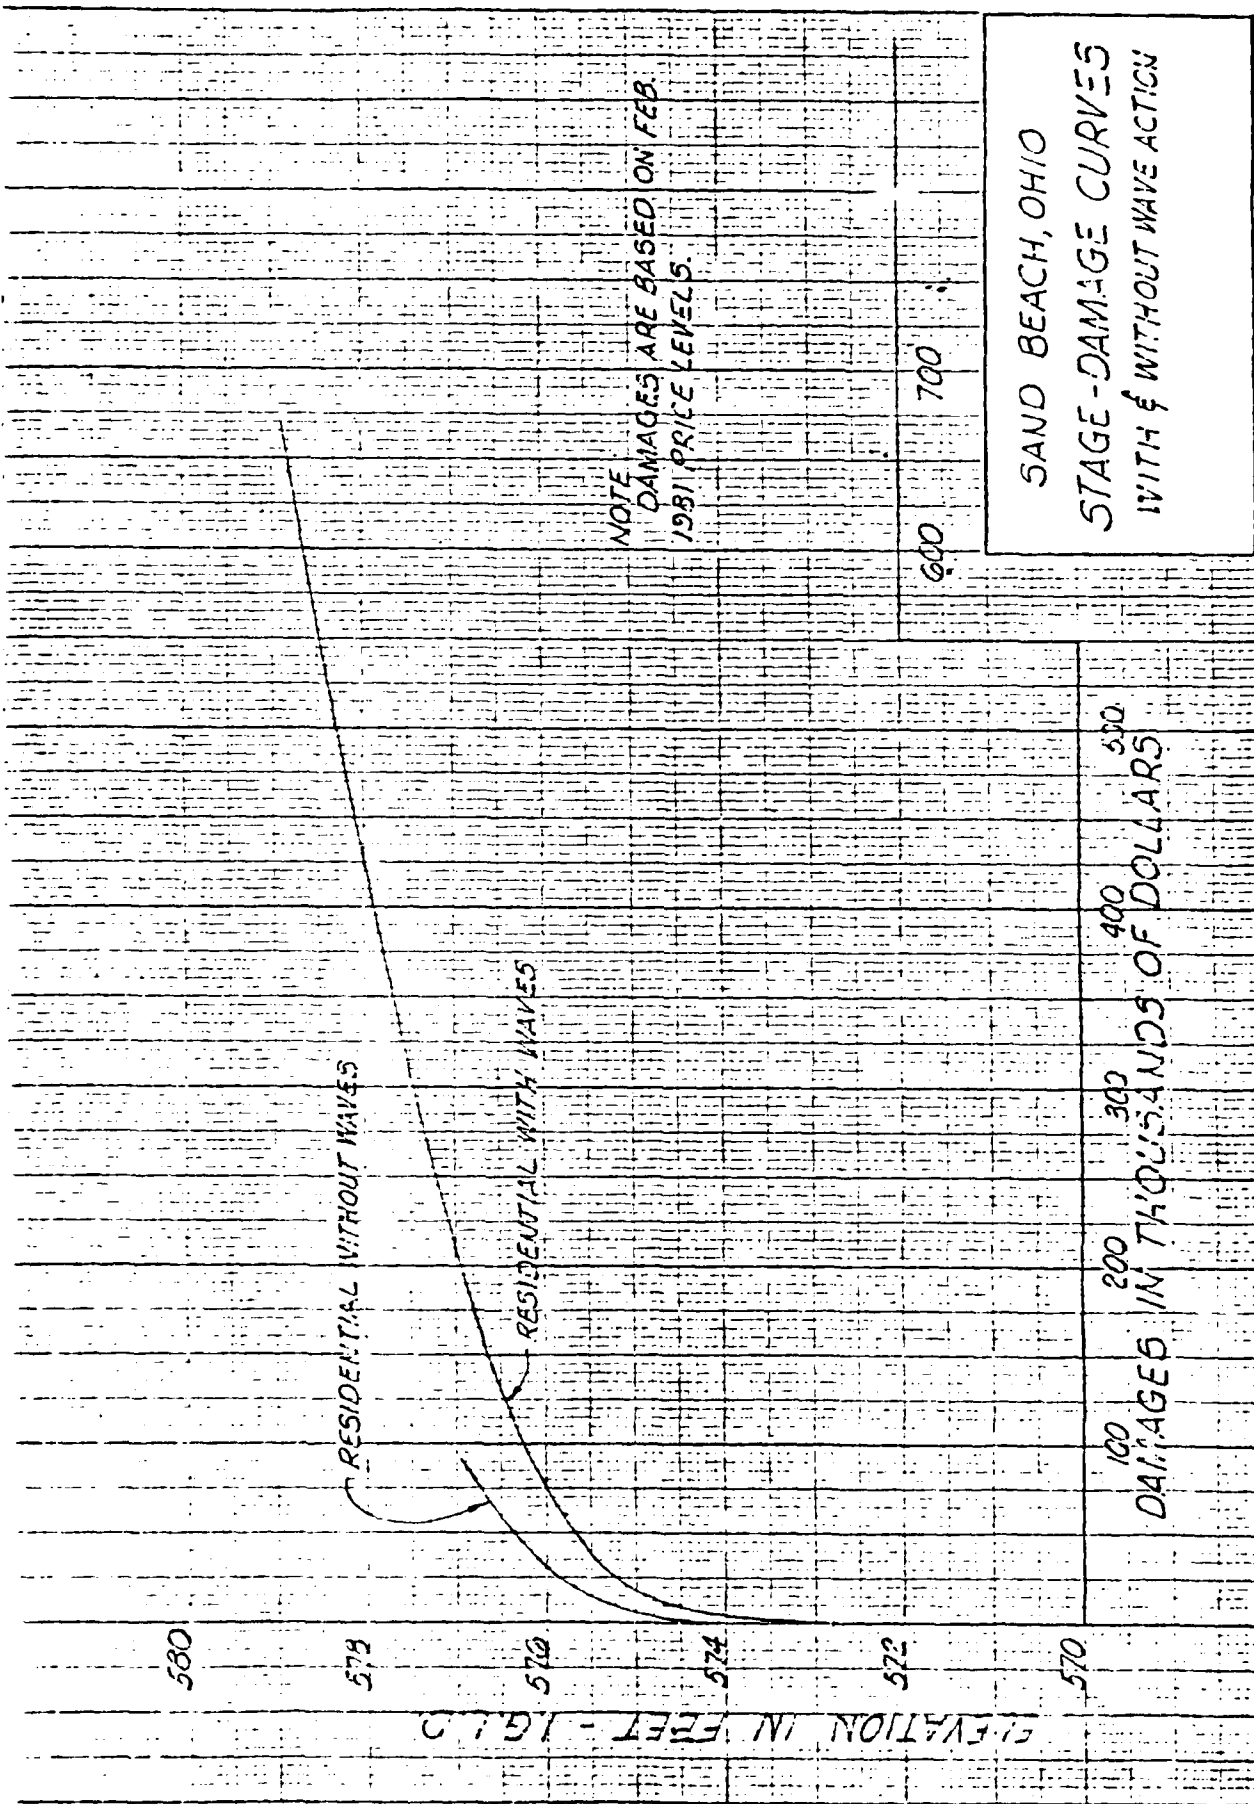 ELEVATION IN FEET - I.G.L.D
580
578
576
574
572
570
RESIDENTIAL WITHOUT WAVES
RESIDENTIAL WITH WAVES
NOTE:
DAMAGES ARE BASED ON FEB.
1981 PRICE LEVELS.
600 700
100 200 300 400 500
DAMAGES IN THOUSANDS OF DOLLARS
SAND BEACH, OHIO
STAGE-DAMAGE CURVES
WITH & WITHOUT WAVE ACTION